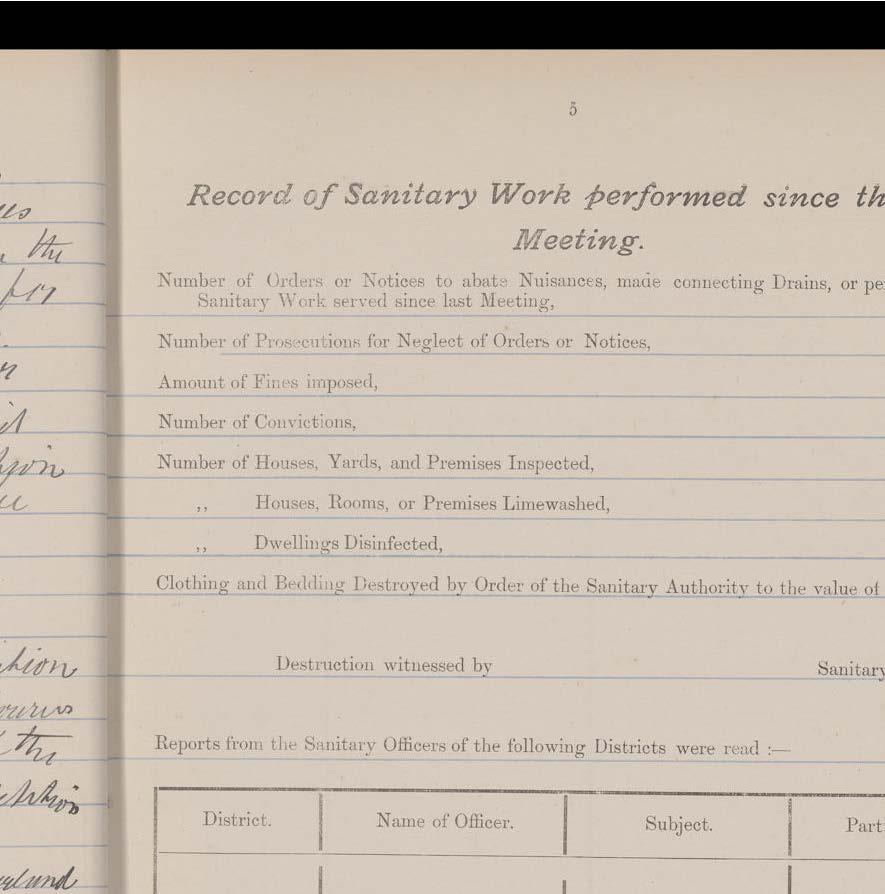 the
5
Record of Sanitary Work performed since th
Meeting.
Number of Orders or Notices to abate Nuisances, made connecting Drains, or pe
Sanitary Work served since last Meeting,
Number of Prosecutions for Neglect of Orders or Notices,
Amount of Fines imposed,
Number of Convictions,
Number of Houses, Yards, and Premises Inspected,
,, Houses, Rooms, or Premises Limewashed,
,, Dwellings Disinfected,
Clothing and Bedding Destroyed by Order of the Sanitary Authority to the value of
Destruction witnessed by Sanitary
the
Reports from the Sanitary Officers of the following Districts were read :—
District. Name of Officer. Subject. Part